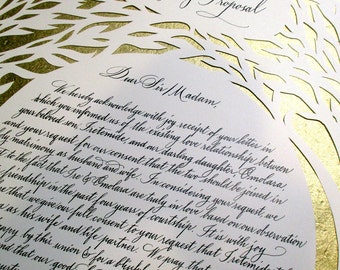 Proposal
Dear Sir/Madam,
We hereby acknowledge with joy receipt of your letter in
which you informed us of the existing love relationship between
your beloved son, Iretomide, and our darling daughter, Omolara
and your request for our consent that the two should be joined in
holy matrimony as husband and wife. In considering your request, we
to the fact that Ire & Omolara are truly in love based on our observation
friendship in the past four years of courtship. It is with joy
that we give our full consent to your request that Iretomide
as his wife and life partner. We pray that
enjoy by this union & for a
and that our good